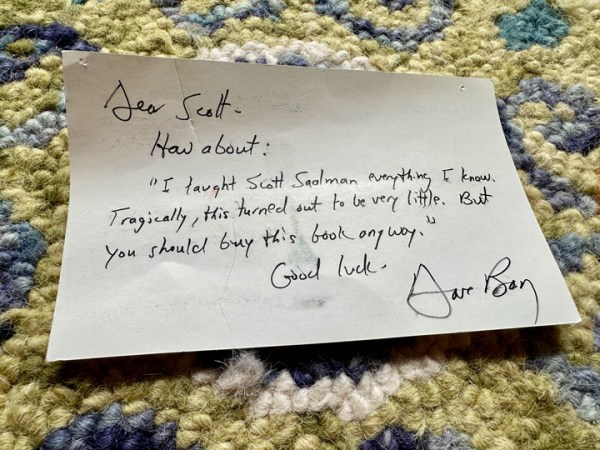 Dear Scott-
How about:
"I taught Scott Saalman everything I know.
Tragically, this turned out to be very little. But
you should buy this book anyway."
Good luck-
Dave Barry